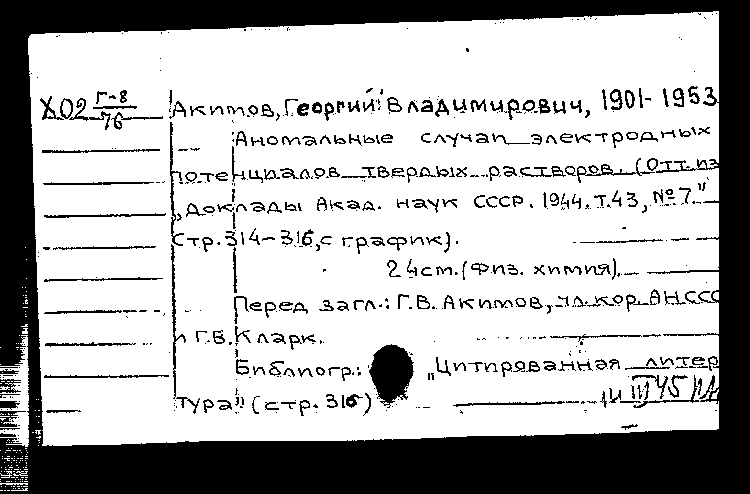 Х02 Г-8/76
Акимов, Георгий Владимирович, 1901-1953
Аномальные случаи электродных
потенциалов твердых растворов. (Отт. из
„Доклады Акад. наук СССР. 1944. Т.43, №7."
Стр. 314-316, с график).
24 см. (Физ. химия).
Перед загл.: Г.В. Акимов, чл. кор. АН.ССС
и Г.В. Кларк.
Библиогр.: „Цитированная литер
тура" (стр. 316)
III 45